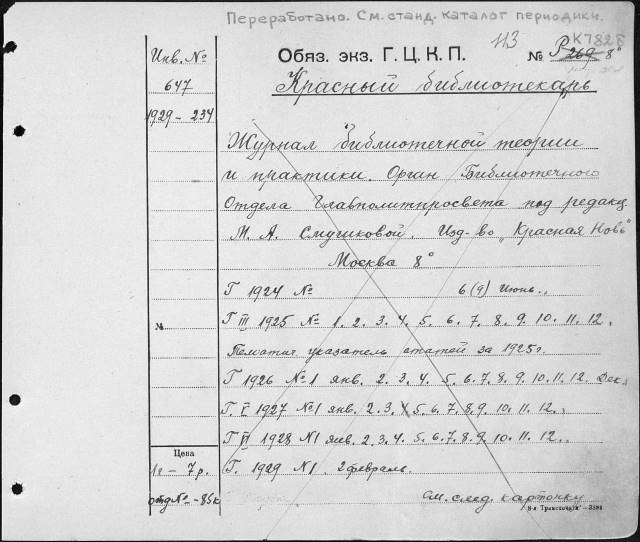 Переработано. См. станд. каталог периодики.
Инв. №
647
1929-234
Обяз. экз. Г. Ц. К. П.
113
№ Р 269 8°
К782Б
Красный библиотекарь
Журнал библиотечной теории
и практики. Орган Библиотечного
Отдела Главполитпросвета под редакц.
М. А. Смушковой. Изд-во „Красная Новь"
Москва 8°
Г 1924 № 6(9) Июнь.
№
Г III 1925 № 1. 2. 3. 4. 5. 6. 7. 8. 9. 10. 11. 12.
Тематич. указатель статей за 1925 г.
Г 1926 № 1 янв. 2. 3. 4. 5. 6. 7. 8. 9. 10. 11. 12. Дек.
Г. V 1927 № 1 янв. 2. 3. 5. 6. 7. 8. 9. 10. 11. 12.
Г VI 1928 № 1 янв. 2. 3. 4. 5. 6. 7. 8. 9. 10. 11. 12.
Цена
1г - 7 р.
Г. 1929 № 1. 2 февраль.
отд № - 85 к
См. след. карточку
8-я Транспечати